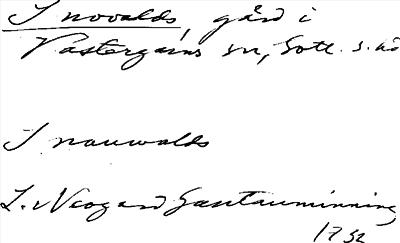 Snovalds, gård i
Västergarns sn, Gotl. s. hd
Snauwalds
L. Neogard Gautauminning
1732